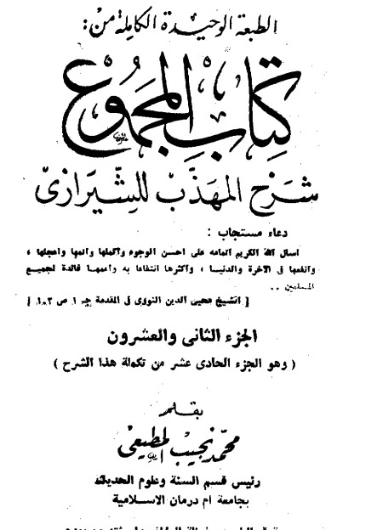 الطبعة الوحيدة الكاملة من :
كتاب المجموع
شرح المهذب للشيرازى
دعاء مستجاب :
اسأل الله الكريم اتمامه على احسن الوجوه واكملها واتمها واعجلها ،
وانفعها فى الآخرة والدنيا ، واكثرها انتفاعا به واعمها فائدة لجميع
المسلمين ..
[ الشيخ محيى الدين النووى فى المقدمة جـ ١ ص
الجزء الثانى والعشرون
( وهو الجزء الحادى عشر من تكملة هذا الشرح )
بقلم
محمد نجيب المطيعى
رئيس قسم السنة وعلوم الحديث
بجامعة ام درمان الاسلامية